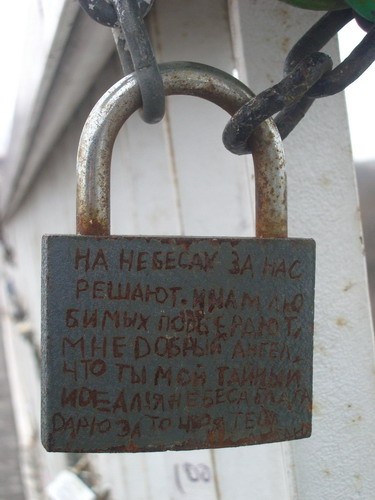 НА НЕБЕСАХ ЗА НАС
РЕШАЮТ. И НАМ ЛЮ
БИМЫХ ПОДБЕРАЮТ,
МНЕ ДОБРЫЙ АНГЕЛ,
ЧТО ТЫ МОЙ ТАЙНЫЙ
ИДЕАЛ Я НЕБЕСА БЛАГА
ДАРЮ ЗА ТО ЧТО Я ТЕБЯ
100